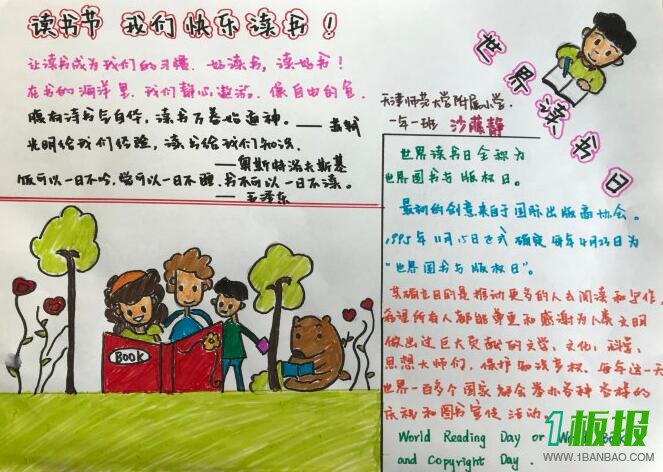 读书节 我们快乐读书！
让读书成为我们的习惯．好读书，读好书！
在书的海洋里．我们静心遨游．像自由的鱼．
腹有诗书气自华，读书万卷始通神。——苏轼
光明给我们经验，读书给我们知识．
——奥斯特洛夫斯基
饭可以一日不吃，觉可以一日不睡．书不可以一日不读。
——毛泽东
世界读书日
天津师范大学附属小学．
一年一班 沙薇静
世界读书日全称为
世界图书与版权日。
最初的创意来自于国际出版商协会。
1995年11月15日正式确定每年4月23日为
“世界图书与版权日”。
其确立目的是推动更多的人去阅读和写作，
希望所有人都能尊重和感谢为人类文明
做出过巨大贡献的文学、文化、科学、
思想大师们，保护知识产权．每年这一天
世界一百多个国家都会举办各种各样的
庆祝和图书宣传活动。
World Reading Day or World Book
and Copyright Day．
BOOK
1板报
WWW.1BANBAO.COM